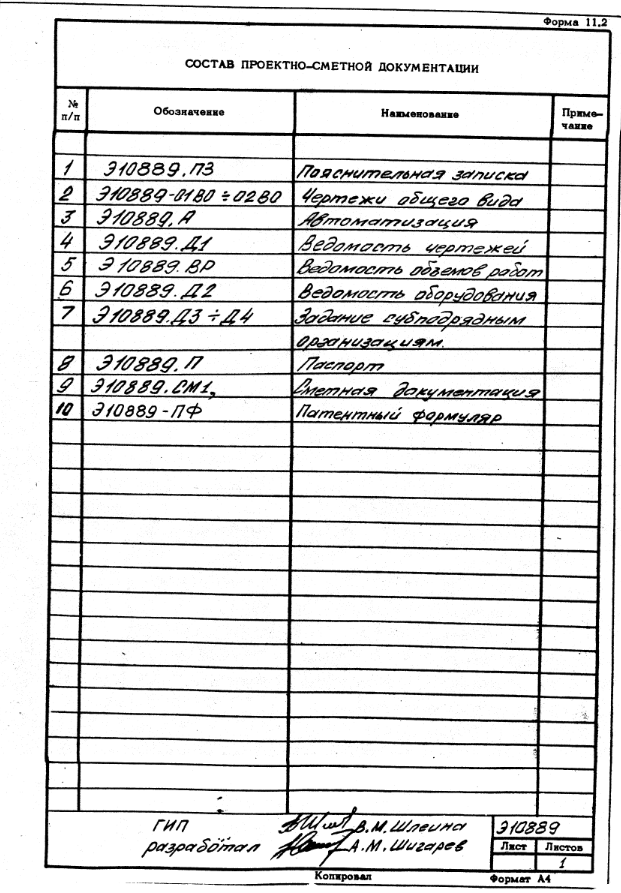 Форма 11.2
СОСТАВ ПРОЕКТНО-СМЕТНОЙ ДОКУМЕНТАЦИИ
№ п/п Обозначение Наименование Приме-чание
1 Э10889.ПЗ Пояснительная записка
2 Э10889-01ВО÷02ВО Чертежи общего вида
3 Э10889.А Автоматизация
4 Э10889.Д1 Ведомость чертежей
5 Э10889.ВР Ведомость объемов работ
6 Э10889.Д2 Ведомость оборудования
7 Э10889.Д3÷Д4 Задание субподрядным
организациям.
8 Э10889.П Паспорт
9 Э10889.СМ1, Сметная документация
10 Э10889-ПФ Патентный формуляр
ГИП В.М.Шлеина Э10889
разработал А.М.Шигарев Лист Листов
1
Копировал Формат А4